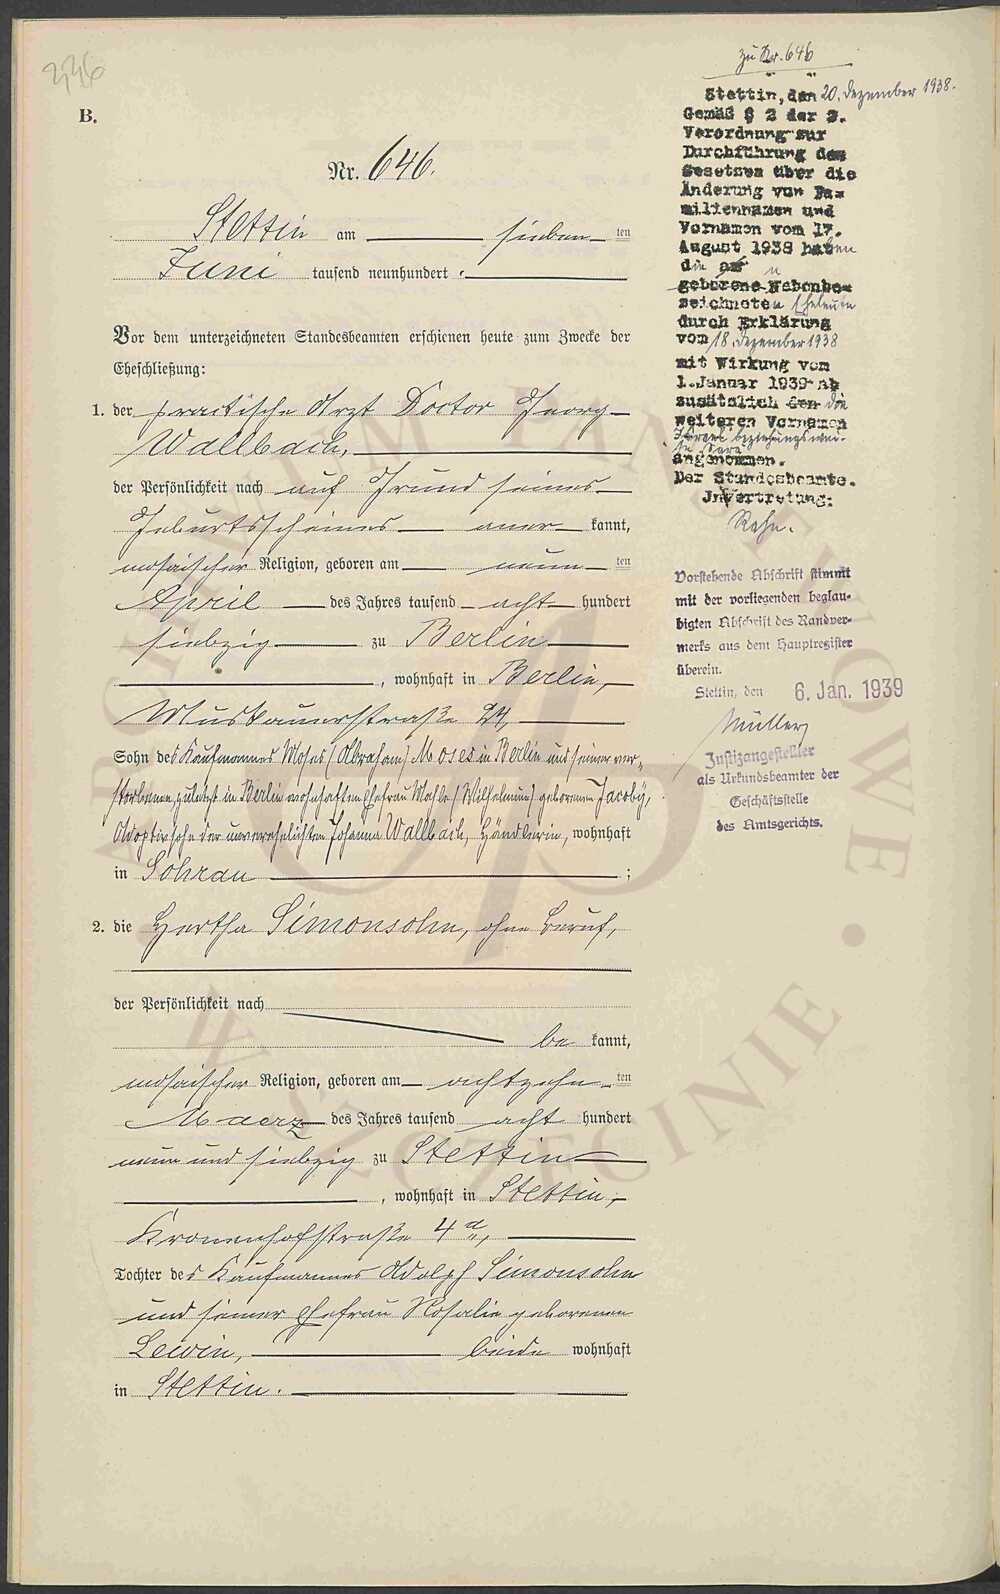 236
B.
Nr. 646.
Stettin am sieben ten
Juni tausend neunhundert
Vor dem unterzeichneten Standesbeamten erschienen heute zum Zwecke der
Eheschließung:
1. der practische Arzt Doctor Georg
Wallbach,
der Persönlichkeit nach auf Grund seines
Geburtsscheines aner kannt,
mosaischer Religion, geboren am neun ten
April des Jahres tausend acht hundert
siebzig zu Berlin
, wohnhaft in Berlin,
Muskauerstraße 24,
Sohn des Kaufmannes Moses (Abraham) Moses in Berlin und seiner ver-
storbenen, zuletzt in Berlin wohnhaften Ehefrau Mahle (Wilhelmine) geborenen Jacoby,
Adoptivsohn der unverehelichten Johanna Wallbach, Händlerin, wohnhaft
in Sohrau ;
2. die Hertha Simonsohn, ohne Beruf,
der Persönlichkeit nach
be kannt,
mosaischer Religion, geboren am achtzehn ten
Maerz des Jahres tausend acht hundert
neun und siebzig zu Stettin
, wohnhaft in Stettin,
Kronenhofstraße 4 a,
Tochter des Kaufmannes Adolph Simonsohn
und seiner Ehefrau Rosalie geborenen
Lewin, beide wohnhaft
in Stettin.
zu Nr. 646
Stettin, den 20. Dezember 1938.
Gemäß § 2 der 2.
Verordnung zur
Durchführung des
Gesetzes über die
Änderung von Fa-
miliennamen und
Vornamen vom 17.
August 1938 haben
die
geborene Nebenbe-
zeichneten Eheleute
durch Erklärung
vom 18. Dezember 1938
mit Wirkung vom
1. Januar 1939 ab
zusätzlich den die
weiteren Vornamen
Israel beziehungswei-
se Sara
angenommen.
Der Standesbeamte.
In Vertretung:
Rahn.
Vorstehende Abschrift stimmt
mit der vorliegenden beglau-
bigten Abschrift des Randver-
merks aus dem Hauptregister
überein.
Stettin, den 6. Jan. 1939
Müller
Justizangestellter
als Urkundsbeamter der
Geschäftsstelle
des Amtsgerichts.
ARCHIWUM PAŃSTWOWE
W SZCZECINIE